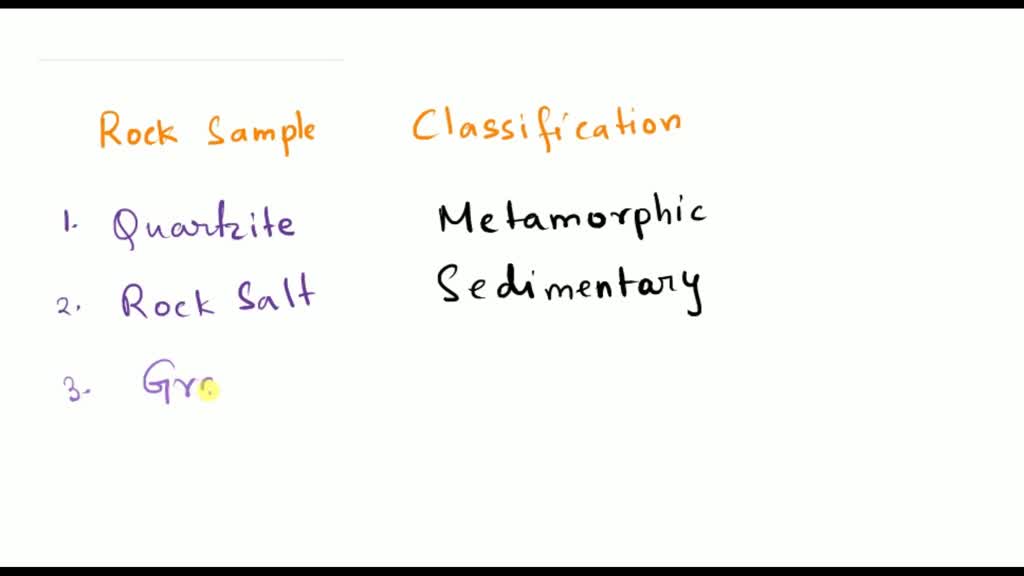 Rock Sample Classification
1. Quartzite Metamorphic
2. Rock Salt Sedimentary
3. Gra